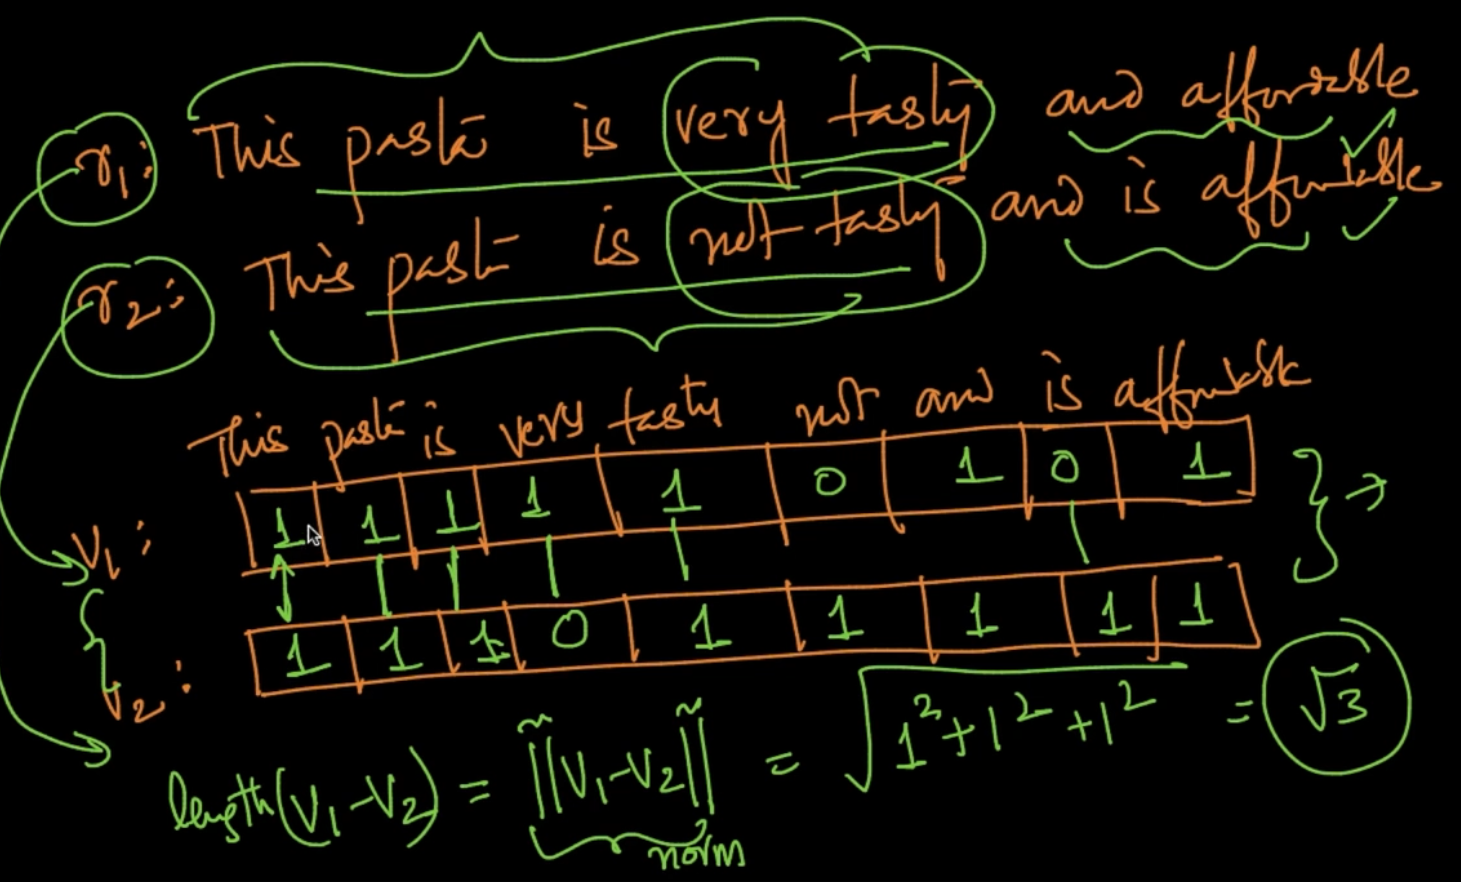 r1: This pasta is very tasty and affordable
r2: This pasta is not tasty and is affordable
This pasta is very tasty not and is affordable
V1: 1 1 1 1 1 0 1 0 1
V2: 1 1 1 0 1 1 1 1 1
length(V1-V2) = ||V1-V2|| = √1²+1²+1² = √3
norm